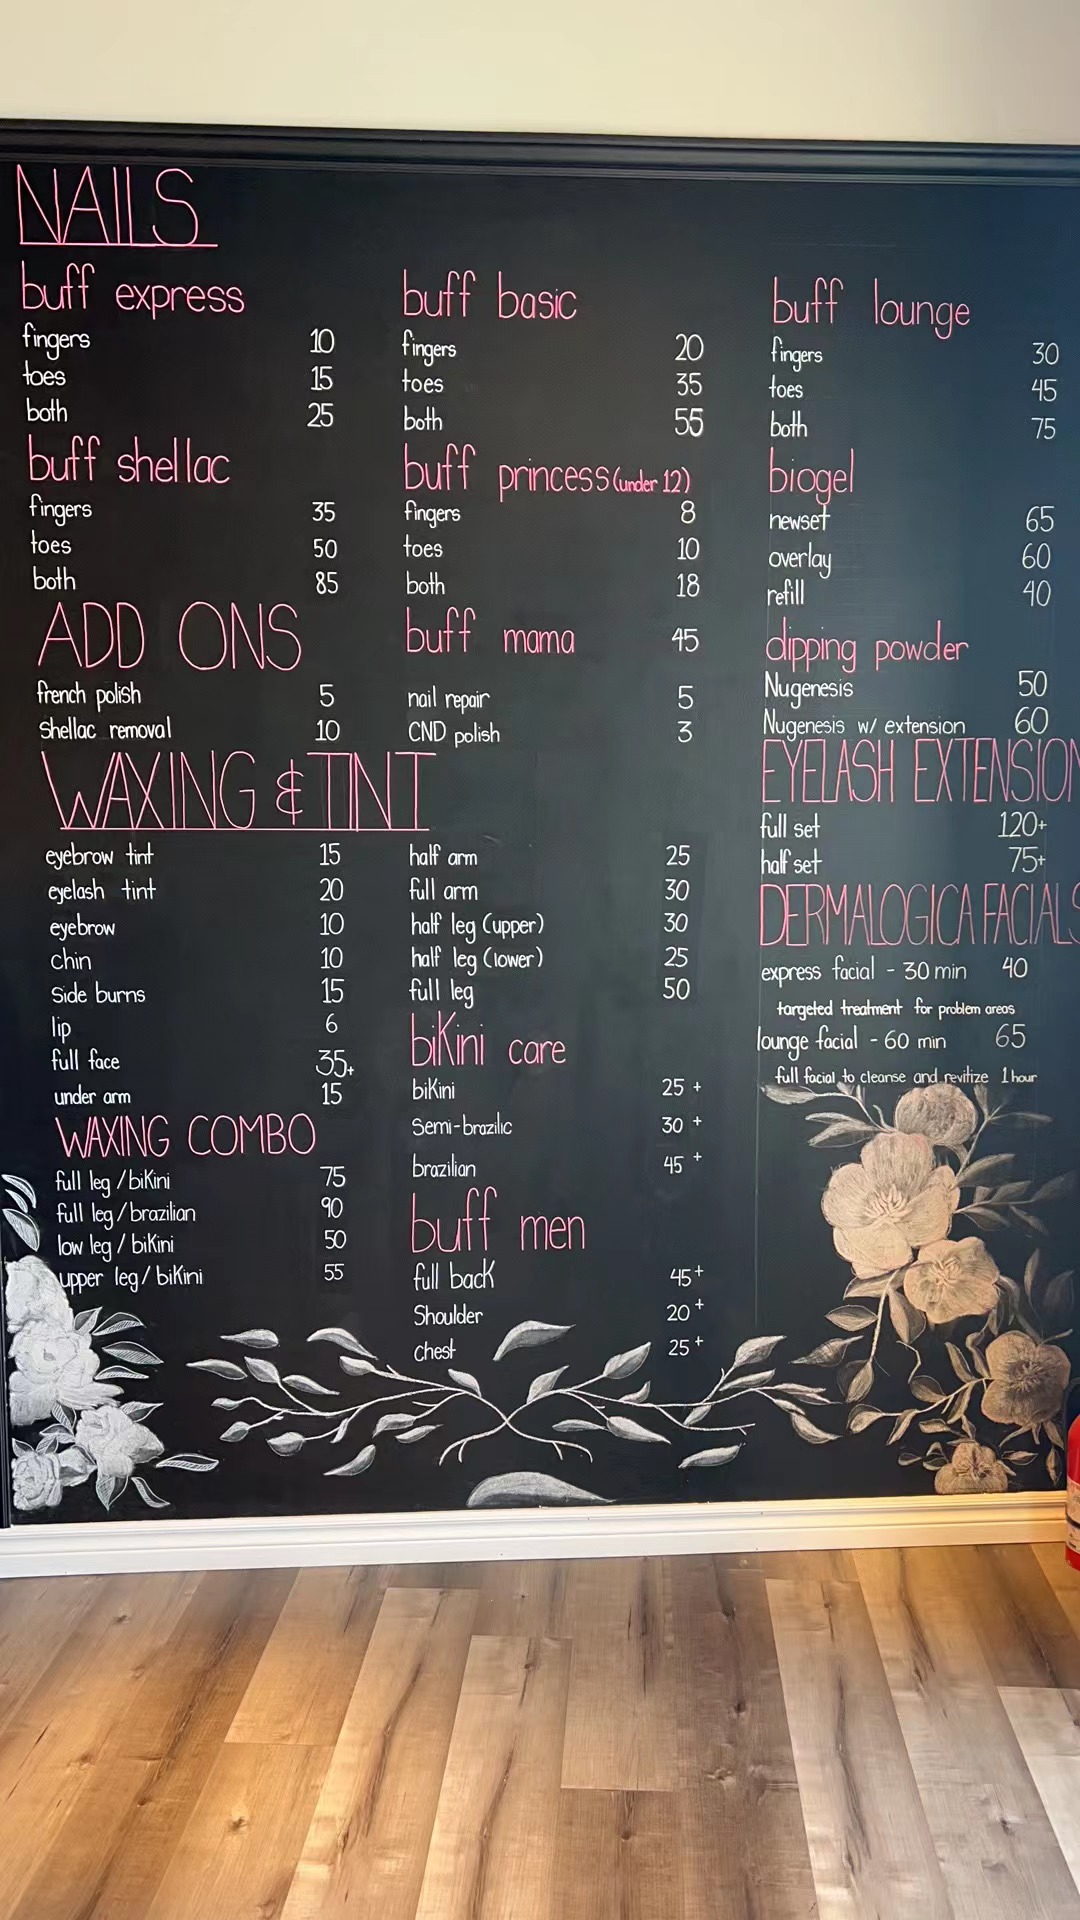 NAILS
buff express
fingers 10
toes 15
both 25
buff shellac
fingers 35
toes 50
both 85
ADD ONS
french polish 5
Shellac removal 10
buff basic
fingers 20
toes 35
both 55
buff princess (under 12)
fingers 8
toes 10
both 18
buff mama 45
nail repair 5
CND polish 3
buff lounge
fingers 30
toes 45
both 75
biogel
newset 65
overlay 60
refill 40
dipping powder
Nugenesis 50
Nugenesis w/ extension 60
WAXING & TINT
eyebrow tint 15
eyelash tint 20
eyebrow 10
chin 10
Side burns 15
lip 6
full face 35+
under arm 15
WAXING COMBO
full leg / bikini 75
full leg / brazilian 90
low leg / bikini 50
upper leg / bikini 55
half arm 25
full arm 30
half leg (upper) 30
half leg (lower) 25
full leg 50
bikini care
bikini 25 +
Semi-brazilic 30 +
brazilian 45 +
buff men
full back 45+
Shoulder 20+
chest 25+
EYELASH EXTENSION
full set 120+
half set 75+
DERMALOGICA FACIALS
express facial - 30 min 40
targeted treatment for problem areas
lounge facial - 60 min 65
full facial to cleanse and revitize 1 hour